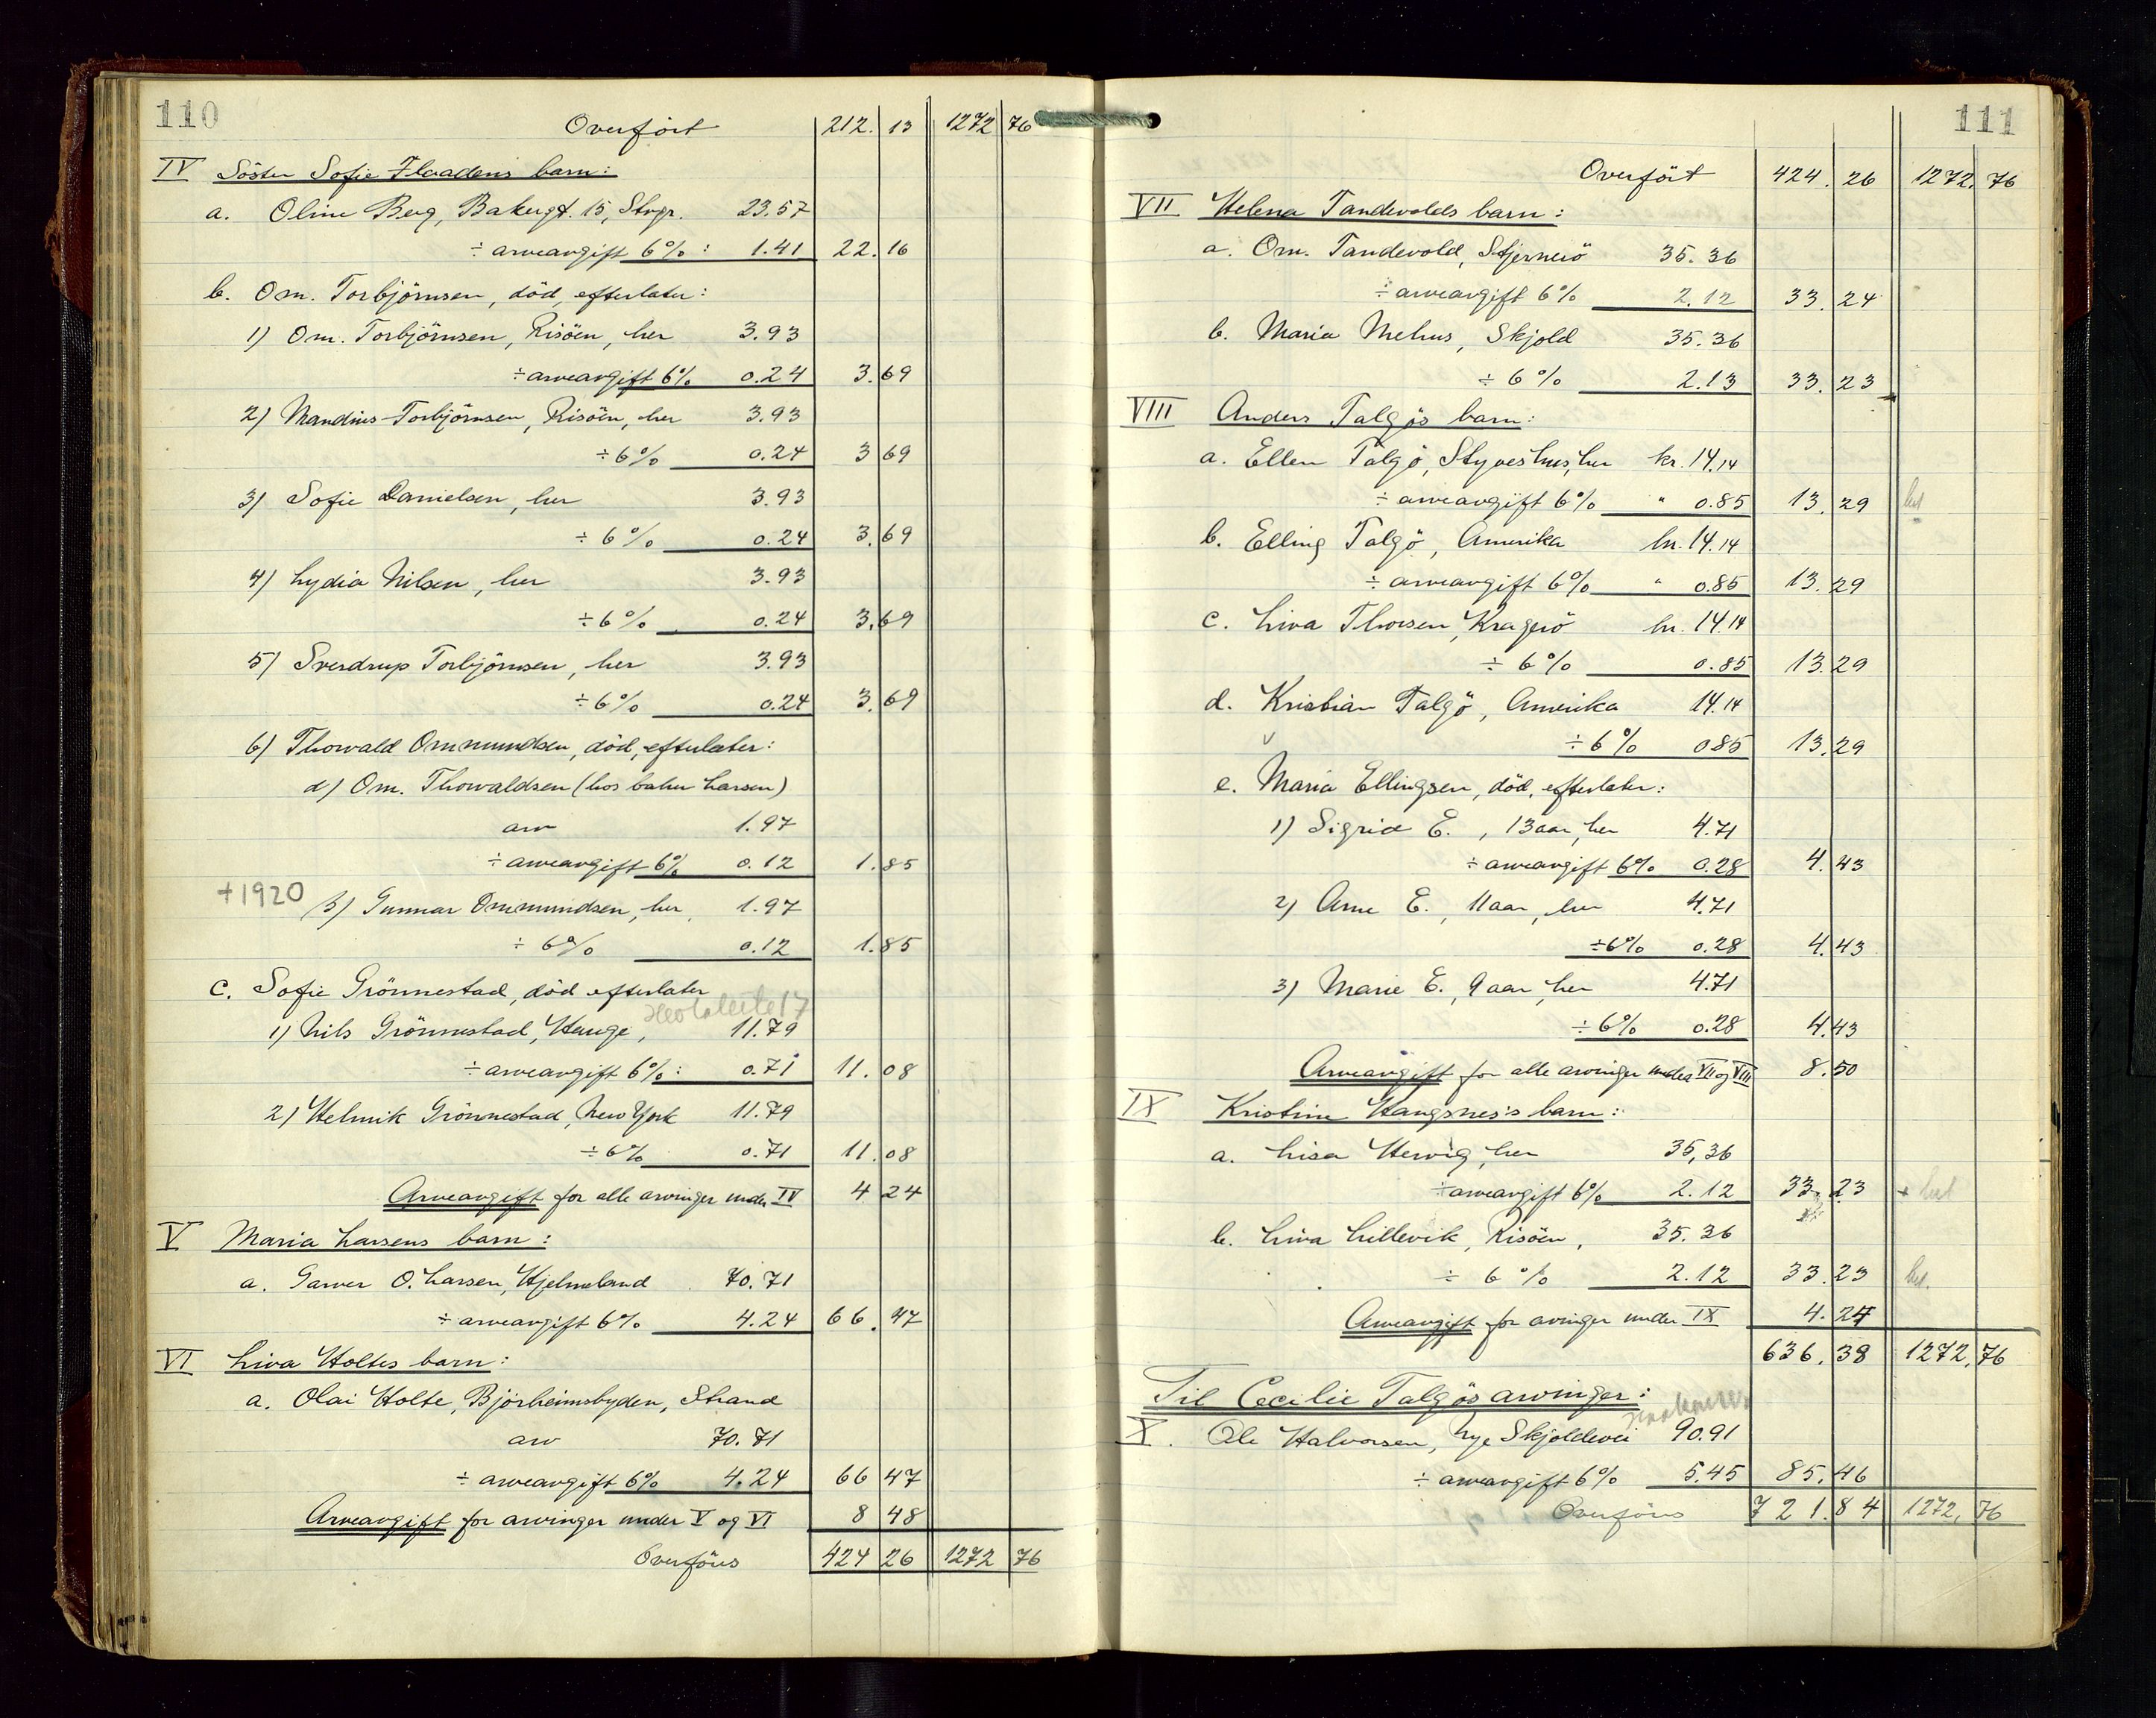 110
Overfört 212. 13 1272 76
IV Söster Sofie Flaadens barn:
a. Oline Berg, Bakergt. 15, Stvgr. 23.57
÷ arveavgift 6%: 1.41 22.16
b. Om. Torbjörnsen, död, efterlater:
1) Om. Torbjörnsen, Risöen, her 3.93
÷ arveavgift 6% 0.24 3.69
2) Mandius Torbjörnsen, Risöen, her 3.93
÷ 6% 0.24 3 69
3) Sofie Danielsen, her 3.93
÷ 6% 0.24 3.69
4) Lydia Nilsen, her 3.93
÷ 6% 0.24 3.69
5) Sverdrup Torbjörnsen, her 3.93
÷ 6% 0.24 3.69
6) Thorvald Ommundsen, död, efterlater:
a) Om. Thorvaldsen (hos baker Larsen)
arv 1.97
÷ arveavgift 6% 0.12 1.85
+1920 b) Gunnar Ommundsen, her, 1.97
÷ 6% 0.12 1.85
c. Sofie Grönnestad, död efterlater
1) Nils Grönnestad, Hauge, 11.79
÷ arveavgift 6%: 0.71 11.08
2) Helmik Grönnestad, New York 11.79
÷ 6% 0.71 11.08
Arveavgift for alle arvinger under IV 4 24
V Maria Larsens barn:
a. Garver O. Larsen, Hjelmeland 70.71
÷ arveavgift 6% 4.24 66.47
VI Liva Holtes barn:
a. Olai Holte, Björheimsbygden, Strand
arv 70.71
÷ arveavgift 6% 4.24 66 47
Arveavgift for arvinger under V og VI 8 48
Overföres 424 26 1272 76
111
Overfört 424.26 1272.76
VII Helena Tandevolds barn:
a. Om. Tandevold, Stjernerö 35.36
÷ arveavgift 6% 2.12 33.24
b. Maria Mehus, Skjold 35.36
÷ 6% 2.13 33.23
VIII Anders Talgös barn:
a. Ellen Talgö, Styveshus, her kr. 14.14
÷ arveavgift 6% " 0.85 13.29
b. Elling Talgö, Amerika kr. 14.14
÷ arveavgift 6% " 0.85 13.29
c. Liva Thorsen, Kragerö kr. 14.14
÷ 6% 0.85 13.29
d. Kristian Talgö, Amerika 14.14
÷ 6% 085 13.29
e. Maria Ellingsen, död, efterlater:
1) Sigrid E., 13 aar, her 4.71
÷ arveavgift 6% 0.28 4.43
2) Arne E., 11 aar, her 4.71
÷ 6% 0.28 4.43
3) Marie E., 9 aar, her 4.71
÷ 6% 0.28 4.43
Arveavgift for alle arvinger under VII og VIII 8.50
IX Kristine Hangsnes's barn:
a. Lisa Hervig, her 35,36
÷ arveavgift 6% 2.12 33.23
b. Liva Lillevik, Risöen, 35.36
÷ 6% 2.12 33.23
Arveavgift for arvinger under IX 4.24
636.38 1272.76
Til Cecilie Talgös arvinger:
X. Ole Halvorsen, Nye Skjoldevei 90.91
÷ arveavgift 6% 5.45 85.46
Overföres 721.84 1272.76